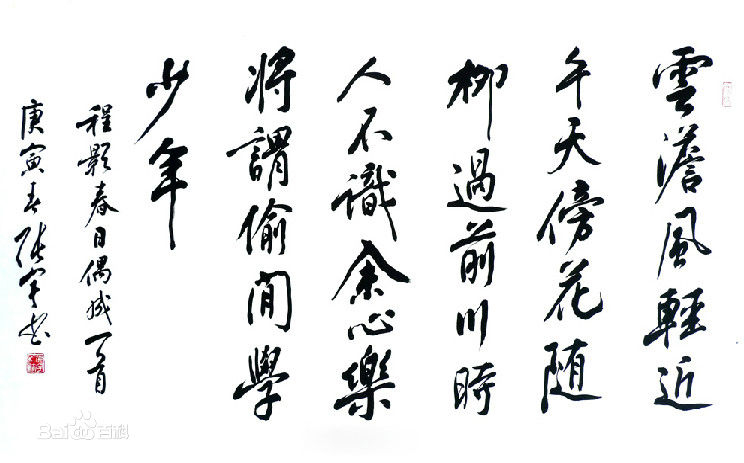 雲澹風輕近
午天傍花随
柳過前川時
人不識余心樂
將謂偷閒學
少年
程颢春日偶成一首
庚寅春張宇书
Bai百科